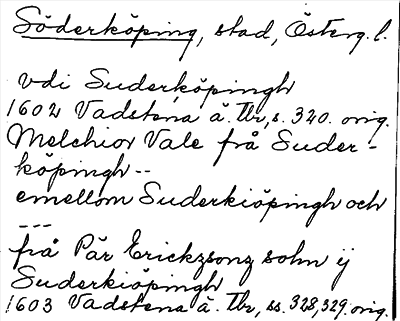 Söderköping, stad, Österg. l.
vdi Suderköpingh
1602 Vadstena ä. Tbr, s. 320. orig.
Melchior Vale frå Suder-
köpingh --
emellom Suderkiöpingh och
---
frå Pär Erickzsonz sohn ij
Suderkiöpingh
1603 Vadstena ä. Tbr, ss. 328, 329. orig.